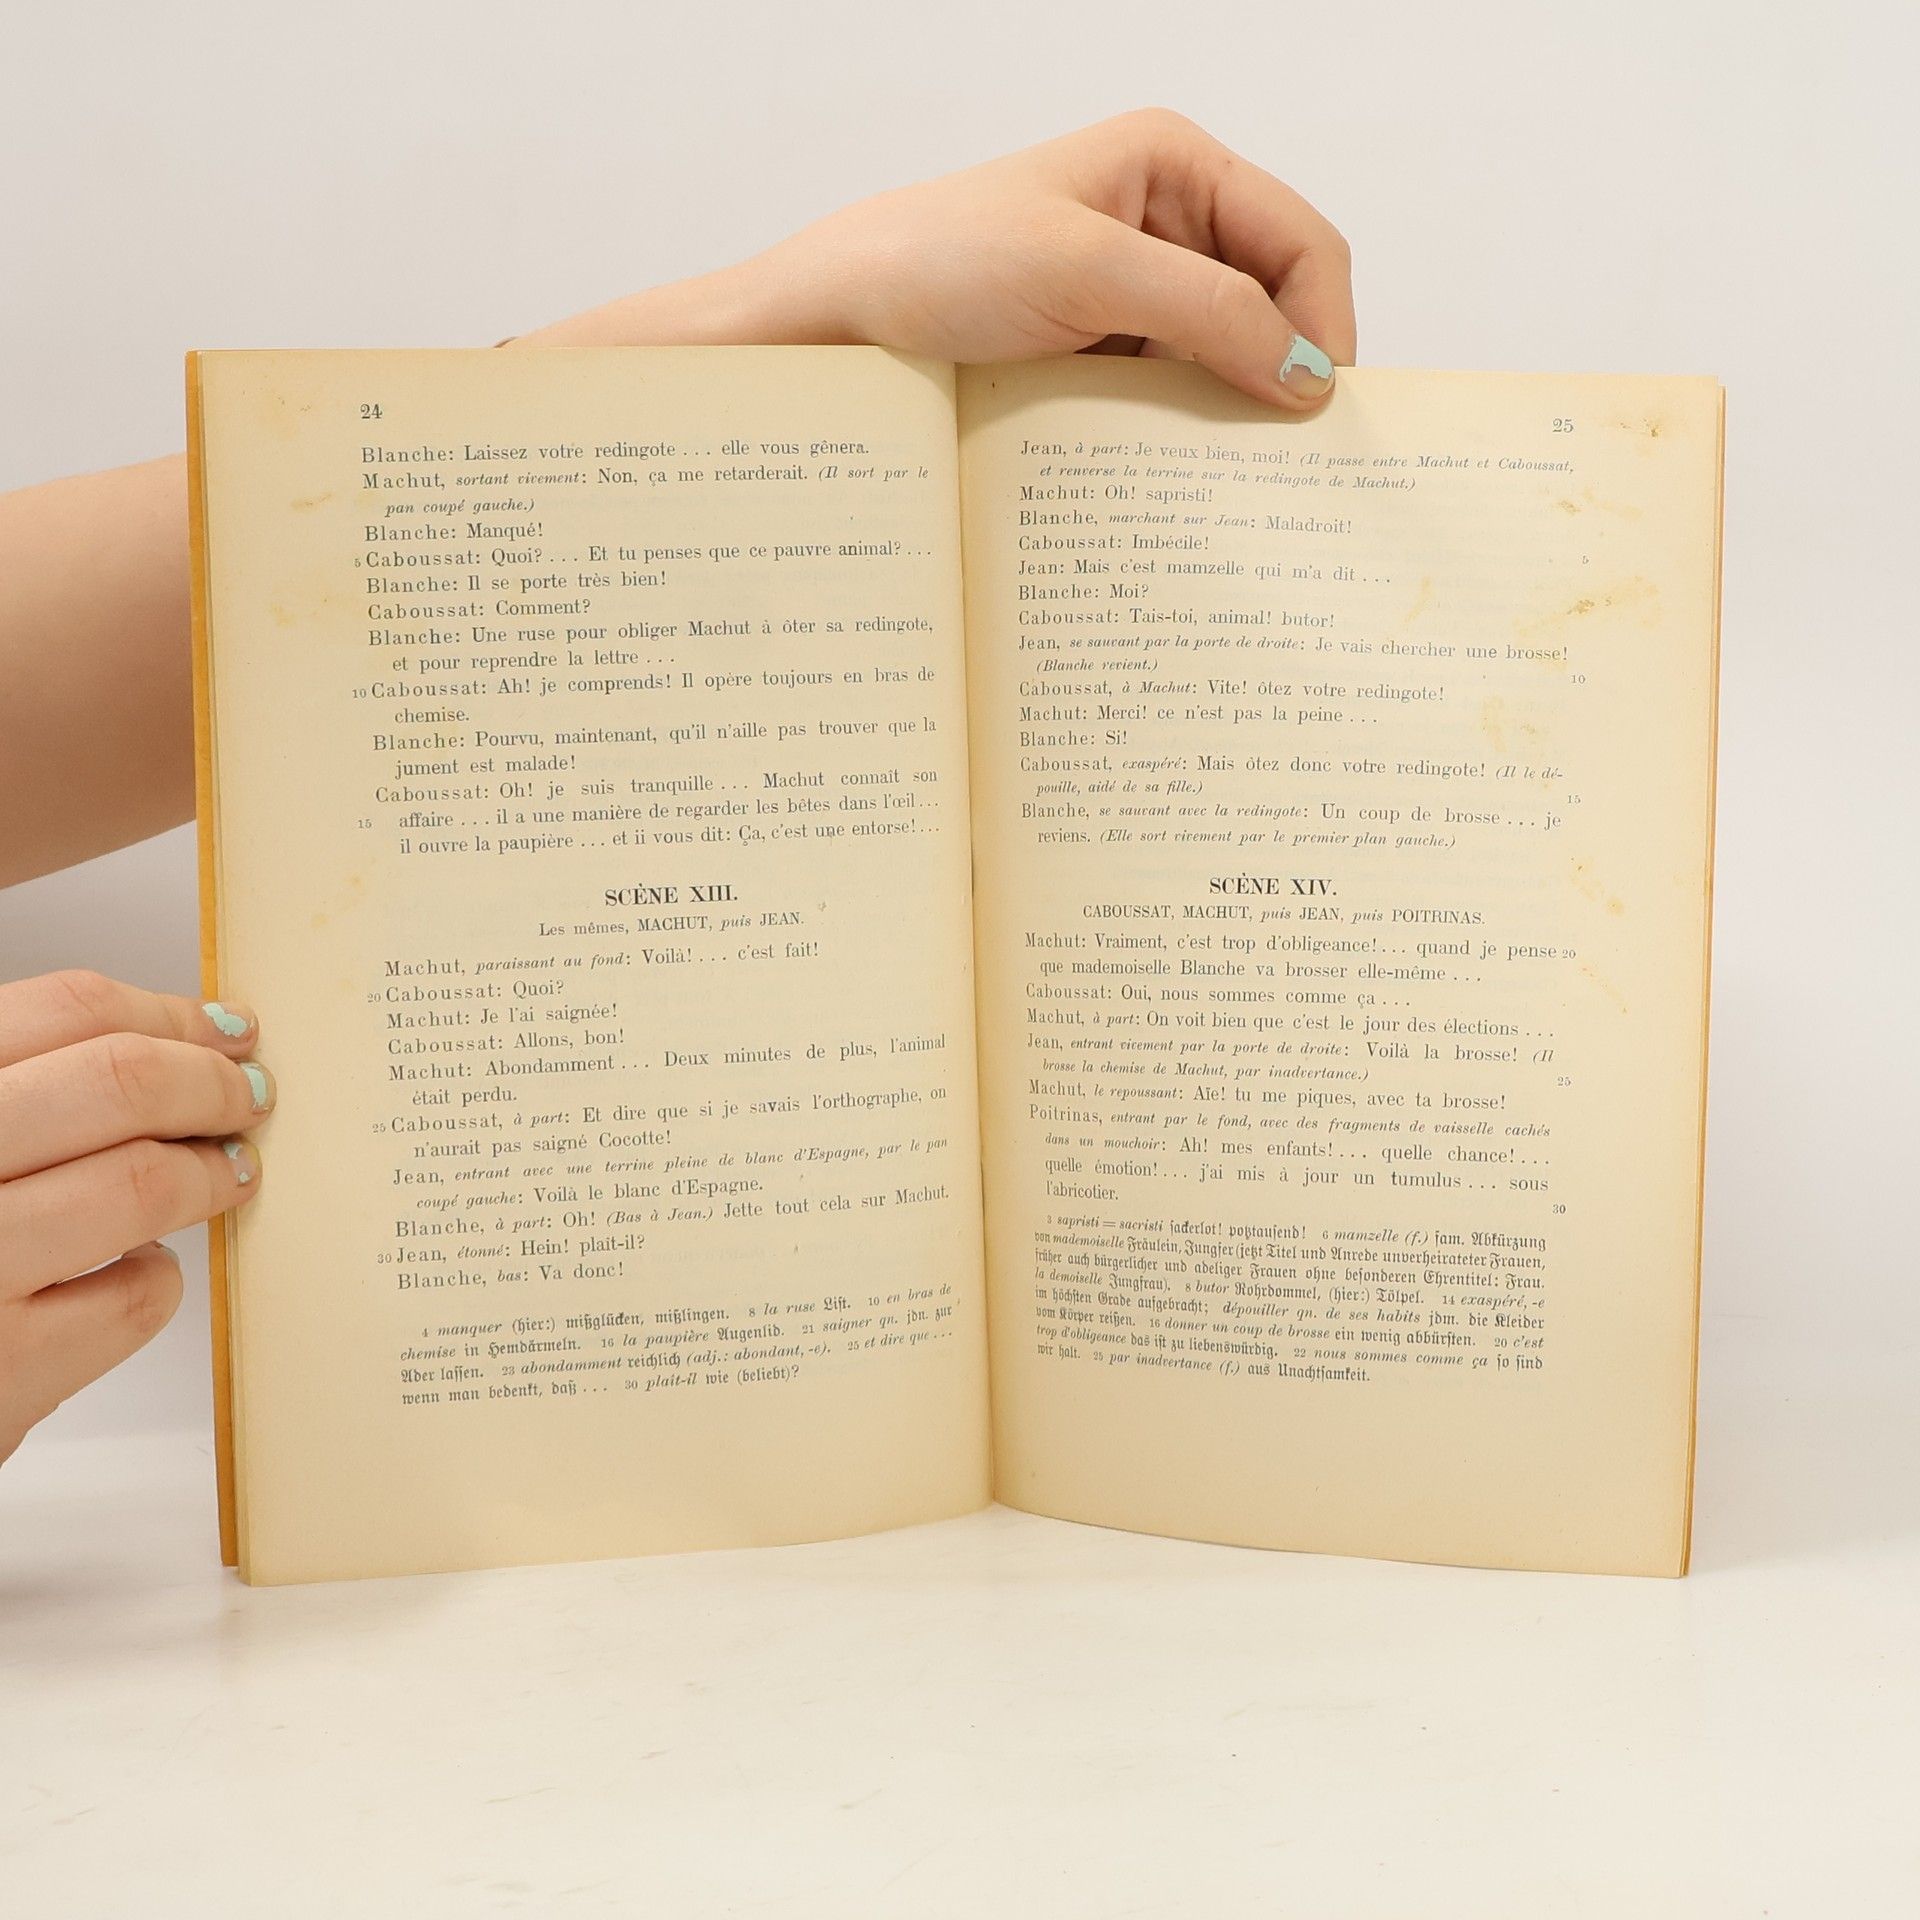 24
Blanche: Laissez votre redingote . . . elle vous gênera.
Machut, sortant vivement: Non, ça me retarderait. (Il sort par le
pan coupé gauche.)
Blanche: Manqué!
5 Caboussat: Quoi? . . . Et tu penses que ce pauvre animal? . . .
Blanche: Il se porte très bien!
Caboussat: Comment?
Blanche: Une ruse pour obliger Machut à ôter sa redingote,
et pour reprendre la lettre . . .
10 Caboussat: Ah! je comprends! Il opère toujours en bras de
chemise.
Blanche: Pourvu, maintenant, qu'il n'aille pas trouver que la
jument est malade!
Caboussat: Oh! je suis tranquille . . . Machut connaît son
15 affaire . . . il a une manière de regarder les bêtes dans l'œil . . .
il ouvre la paupière . . . et ii vous dit: Ça, c'est une entorse! . . .
SCÈNE XIII.
Les mêmes, MACHUT, puis JEAN.
Machut, paraissant au fond: Voilà! . . . c'est fait!
20 Caboussat: Quoi?
Machut: Je l'ai saignée!
Caboussat: Allons, bon!
Machut: Abondamment . . . Deux minutes de plus, l'animal
était perdu.
25 Caboussat, à part: Et dire que si je savais l'orthographe, on
n'aurait pas saigné Cocotte!
Jean, entrant avec une terrine pleine de blanc d'Espagne, par le pan
coupé gauche: Voilà le blanc d'Espagne.
Blanche, à part: Oh! (Bas à Jean.) Jette tout cela sur Machut.
30 Jean, étonné: Hein! plaît-il?
Blanche, bas: Va donc!
4 manquer (hier:) mißglücken, mißlingen. 8 la ruse List. 10 en bras de
chemise in Hemdärmeln. 16 la paupière Augenlid. 21 saigner qn. jdn. zur
Ader lassen. 23 abondamment reichlich (adj.: abondant, -e). 25 et dire que . . .
wenn man bedenkt, daß . . . 30 plaît-il wie (beliebt)?
25
Jean, à part: Je veux bien, moi! (Il passe entre Machut et Caboussat,
et renverse la terrine sur la redingote de Machut.)
Machut: Oh! sapristi!
Blanche, marchant sur Jean: Maladroit!
Caboussat: Imbécile! 5
Jean: Mais c'est mamzelle qui m'a dit . . .
Blanche: Moi?
Caboussat: Tais-toi, animal! butor!
Jean, se sauvant par la porte de droite: Je vais chercher une brosse!
(Blanche revient.) 10
Caboussat, à Machut: Vite! ôtez votre redingote!
Machut: Merci! ce n'est pas la peine . . .
Blanche: Si!
Caboussat, exaspéré: Mais ôtez donc votre redingote! (Il le dé-
pouille, aidé de sa fille.) 15
Blanche, se sauvant avec la redingote: Un coup de brosse . . . je
reviens. (Elle sort vivement par le premier plan gauche.)
SCÈNE XIV.
CABOUSSAT, MACHUT, puis JEAN, puis POITRINAS.
Machut: Vraiment, c'est trop d'obligeance! . . . quand je pense 20
que mademoiselle Blanche va brosser elle-même . . .
Caboussat: Oui, nous sommes comme ça . . .
Machut, à part: On voit bien que c'est le jour des élections . . .
Jean, entrant vivement par la porte de droite: Voilà la brosse! (Il
brosse la chemise de Machut, par inadvertance.) 25
Machut, le repoussant: Aïe! tu me piques, avec ta brosse!
Poitrinas, entrant par le fond, avec des fragments de vaisselle cachés
dans un mouchoir: Ah! mes enfants! . . . quelle chance! . . .
quelle émotion! . . . j'ai mis à jour un tumulus . . . sous
l'abricotier. 30
3 sapristi = sacristi sackerlot! potztausend! 6 mamzelle (f.) fam. Abkürzung
von mademoiselle Fräulein, Jungfer (jetzt Titel und Anrede unverheirateter Frauen,
früher auch bürgerlicher und adeliger Frauen ohne besonderen Ehrentitel: Frau.
la demoiselle Jungfrau). 8 butor Rohrdommel, (hier:) Tölpel. 14 exaspéré, -e
im höchsten Grade aufgebracht; dépouiller qn. de ses habits jdm. die Kleider
vom Körper reißen. 16 donner un coup de brosse ein wenig abbürsten. 20 c'est
trop d'obligeance das ist zu liebenswürdig. 22 nous sommes comme ça so sind
wir halt. 25 par inadvertance (f.) aus Unachtsamkeit.